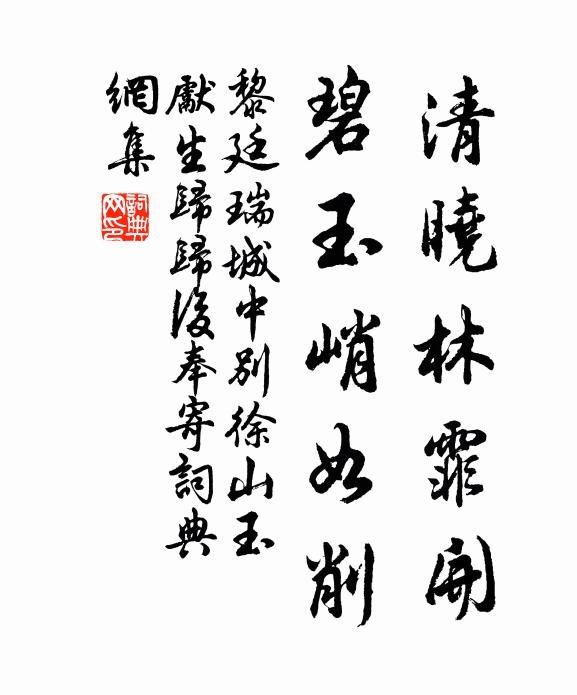 清曉林霏開
碧玉峭如削
黎廷瑞城中別徐山玉
獻生歸歸後奉寄詞典
網集
詞典
网印